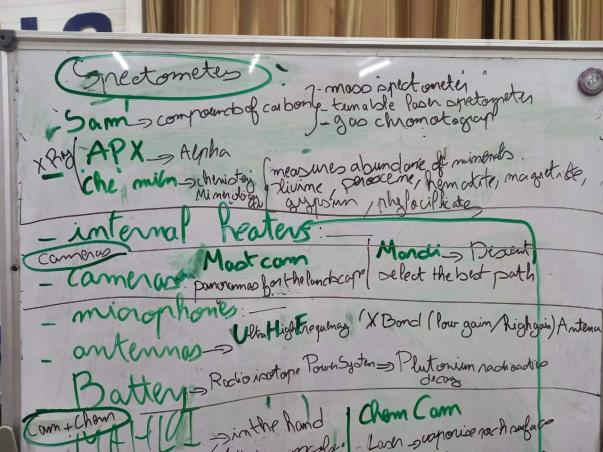 Spectometes :
- Sam → compounds of carbone
- mass spectometer
- tunable laser spetometer
- gas chromatograp
X Ray
APX → Alpha
che min → chemistry Minerology
measures abundane of minerals.
olivine, peroxene, hematite, magnetite,
gypsium, phylocilicates
- internal heaters
Cameras
- cameras
Mastcam
panoramas for the landscape
Mardi → Descent
select the best path
- microphones
- antennas → Ultra High Frequency
X Bond (low gain/high gain) Antenna
Battery → Radio isotope Power System ⇒ Plutonium radioactive
decay
Cam + Chem
MAHLI → in the hand
Chem Cam
- Laser → vaporise rock surface